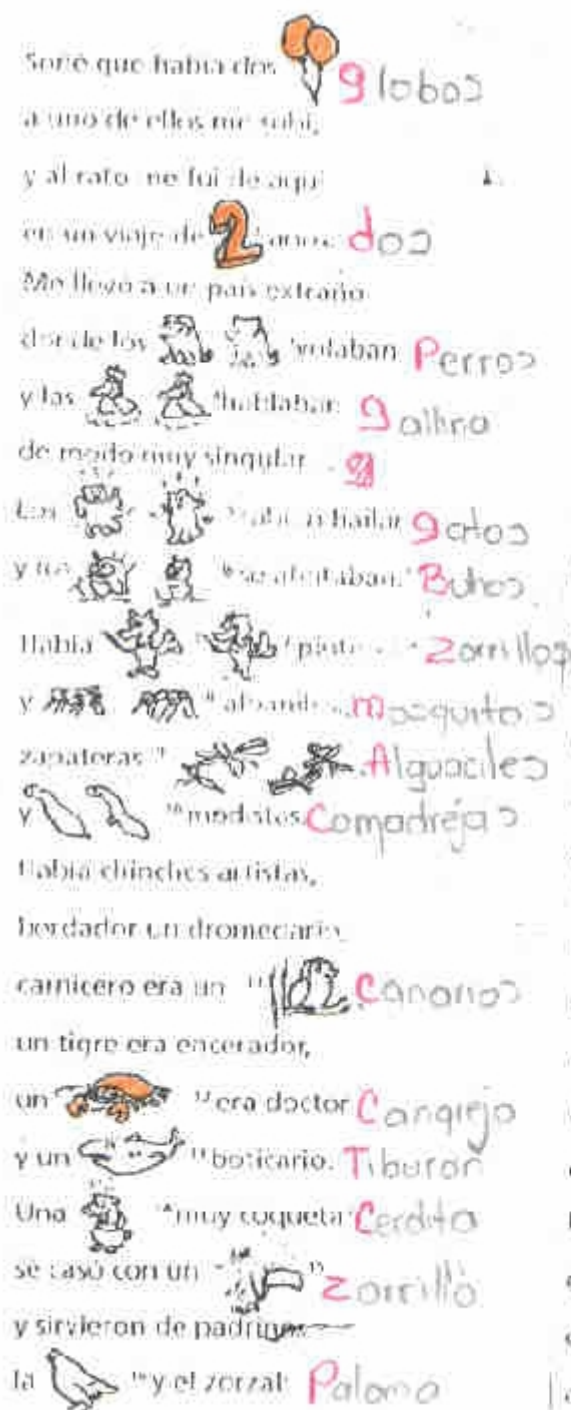 Soñé que había dos globos
a uno de ellos me subí,
y al rato me fui de aquí
en un viaje de 2 años. dos
Me llevó a un país extraño
donde los volaban Perros
y las hablaban gallina
de modo muy singular. g
Los bailar gatos
y los se afeitaban. Buhos
Había Zorrillos
y mosquitos
zapateras 9 Alguaciles
y 10 modistos. Comadrejas
Había chinches artistas,
bordador un dromedario,
carnicero era un 11 Canarios
un tigre era encerador,
un 12 era doctor Cangrejo
y un 13 boticario. Tiburon
Una 14 muy coqueta Cerdita
se casó con un 15 Zorrillo
y sirvieron de padrinos
la 16 y el zorzal. Paloma